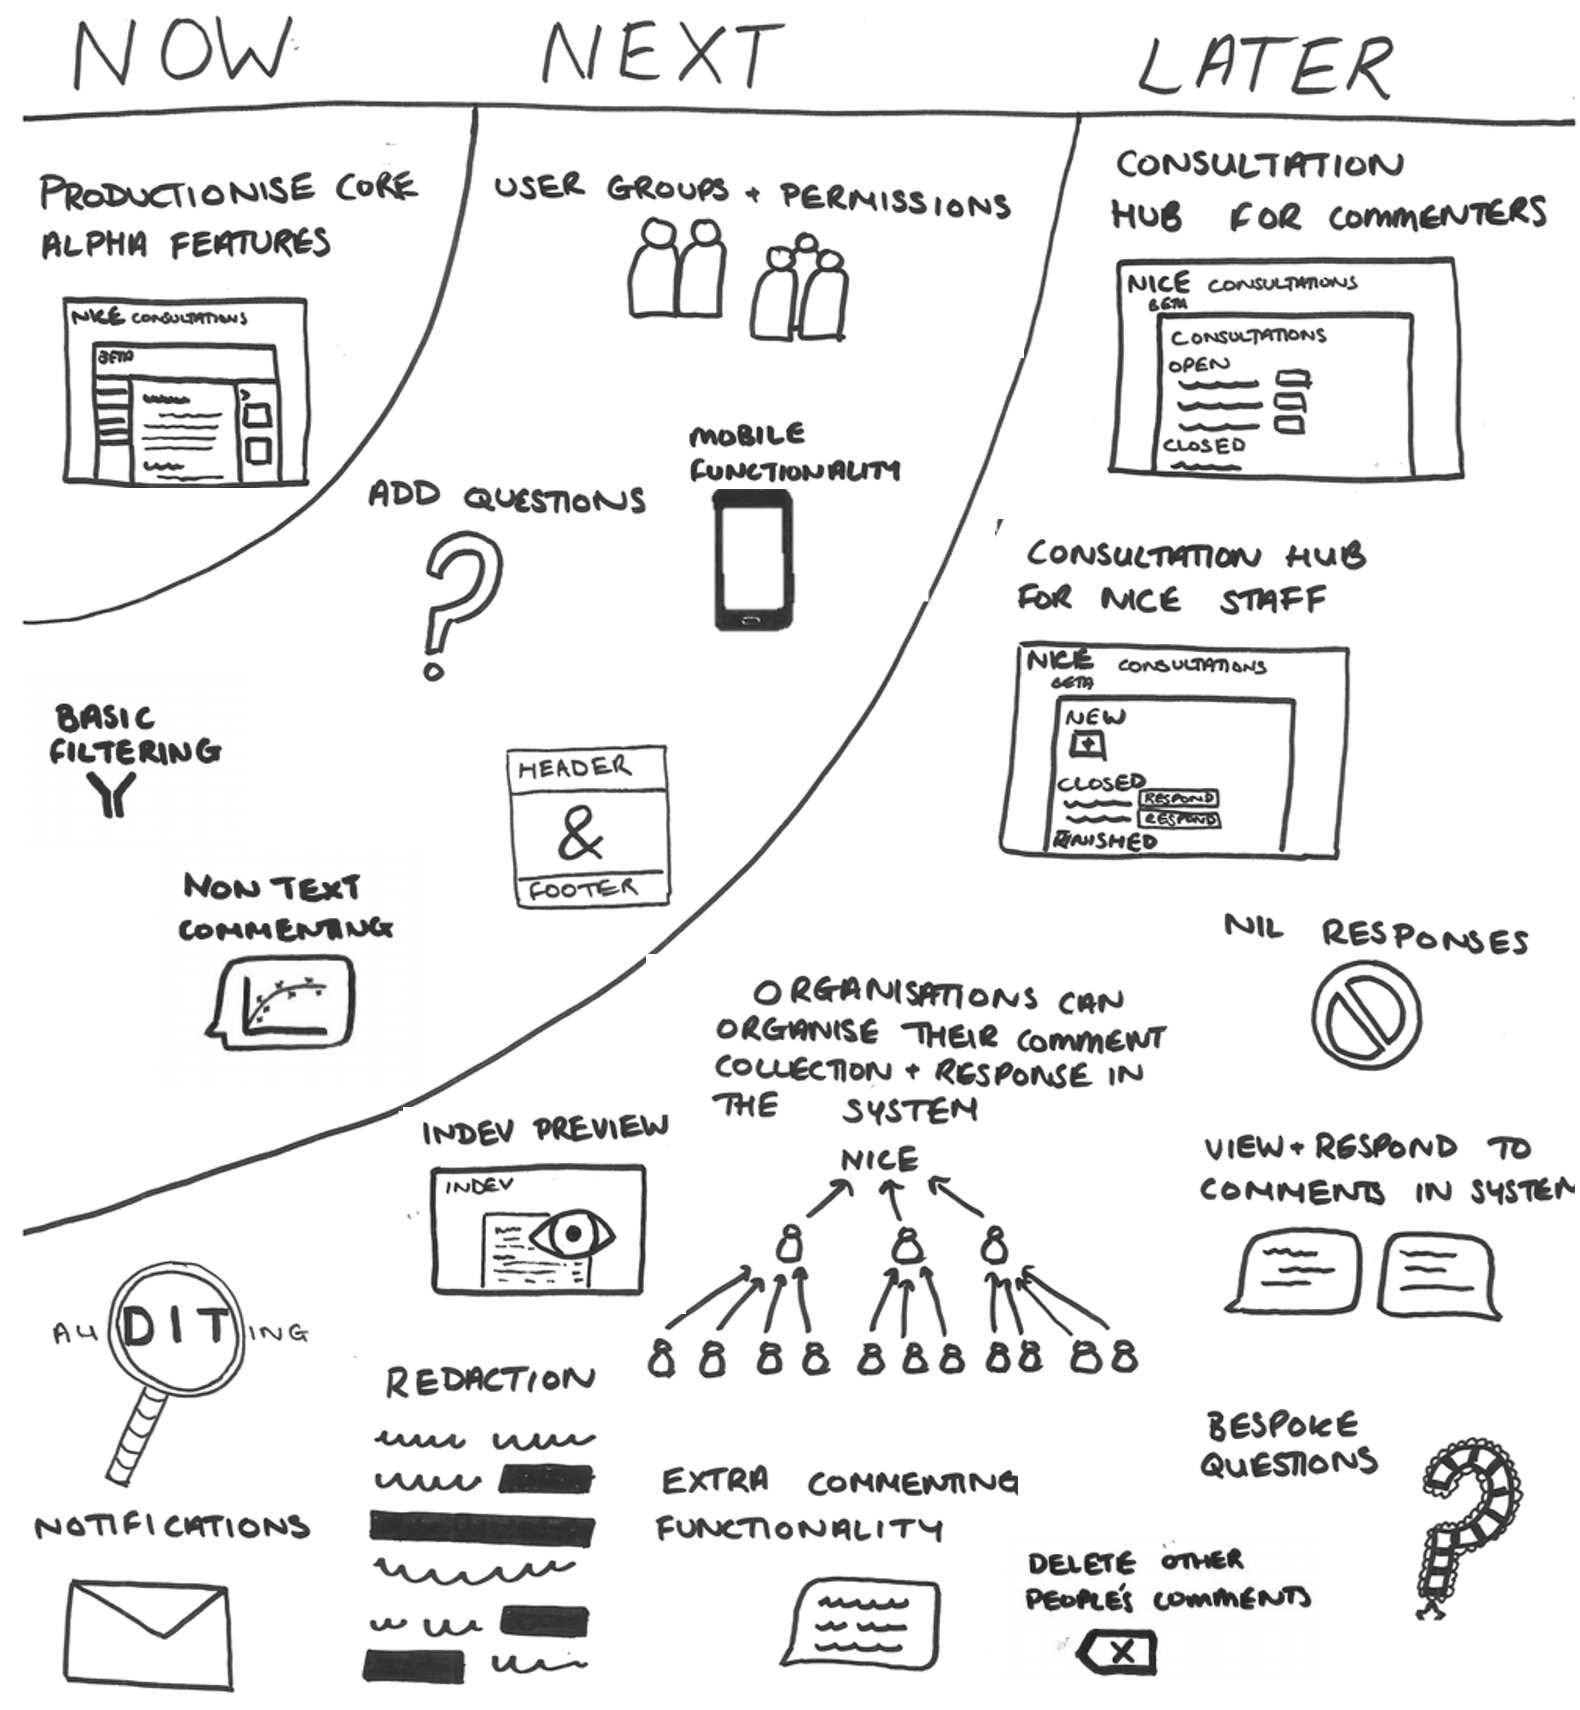 NOW
NEXT
LATER
PRODUCTIONISE CORE
ALPHA FEATURES
NICE CONSULTATIONS
BETA
USER GROUPS + PERMISSIONS
MOBILE
FUNCTIONALITY
ADD QUESTIONS
BASIC
FILTERING
HEADER
&
FOOTER
NON TEXT
COMMENTING
CONSULTATION
HUB FOR COMMENTERS
NICE CONSULTATIONS
BETA
CONSULTATIONS
OPEN
CLOSED
CONSULTATION HUB
FOR NICE STAFF
NICE CONSULTATIONS
BETA
NEW
+
CLOSED
RESPOND
RESPOND
FINISHED
NIL RESPONSES
ORGANISATIONS CAN
ORGANISE THEIR COMMENT
COLLECTION + RESPONSE IN
THE SYSTEM
NICE
INDEV PREVIEW
INDEV
VIEW + RESPOND TO
COMMENTS IN SYSTEM
AUDITING
REDACTION
NOTIFICATIONS
EXTRA COMMENTING
FUNCTIONALITY
BESPOKE
QUESTIONS
DELETE OTHER
PEOPLE'S COMMENTS
X